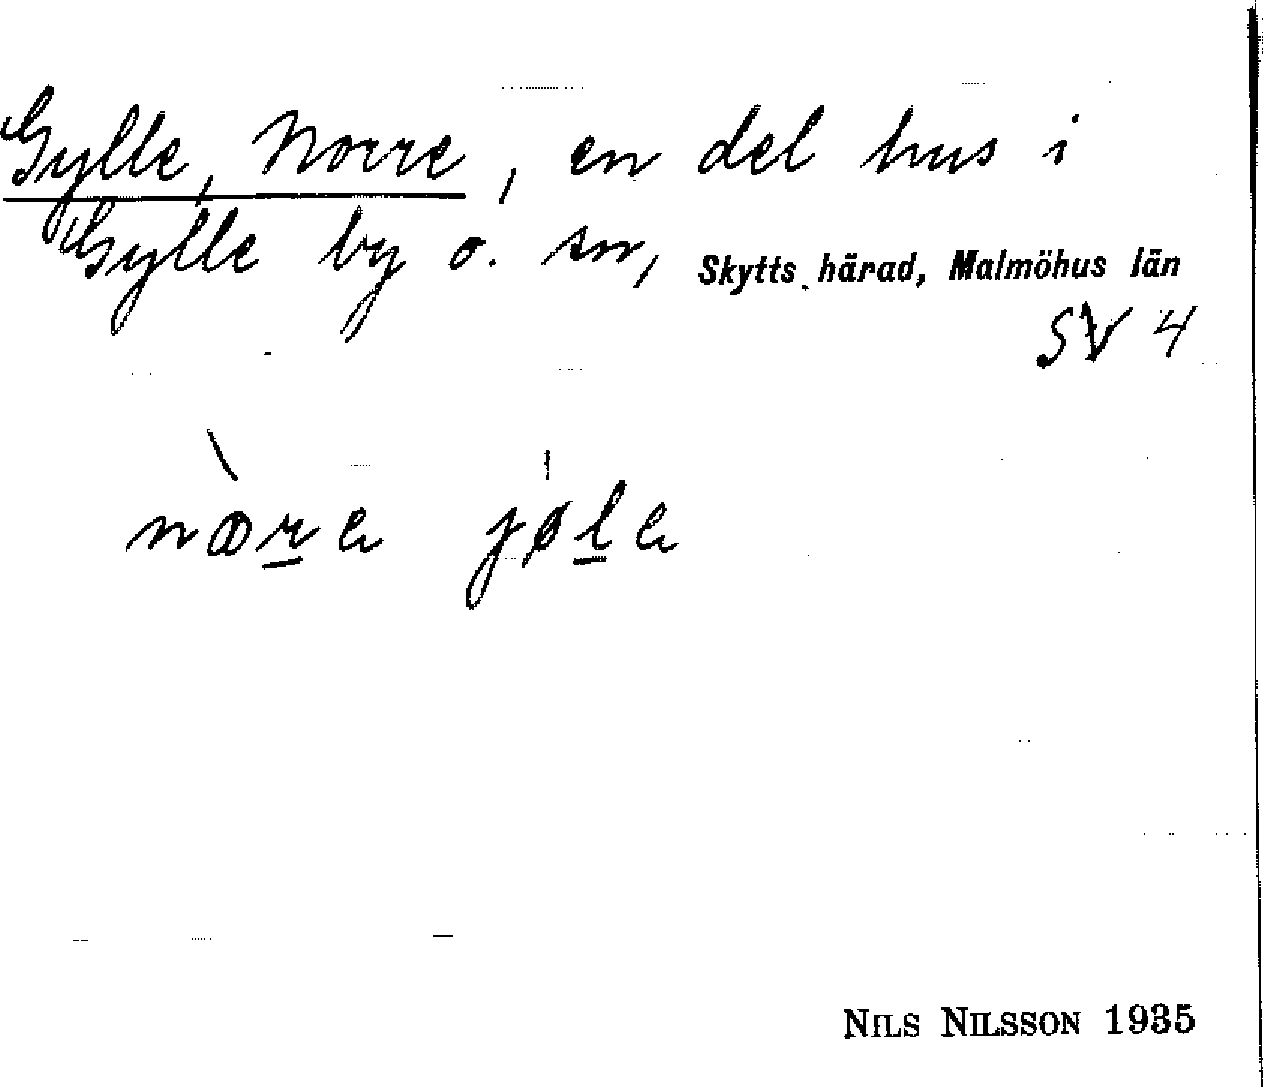 Gylle, Norre, en del hus i
Gylle by o. sn, Skytts härad, Malmöhus län
SV 4
nꝏ̀re jǿle
NILS NILSSON 1935